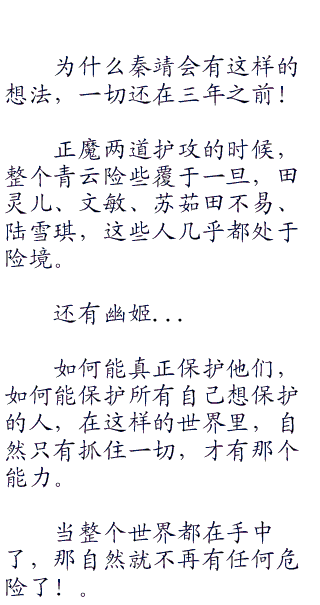 为什么秦靖会有这样的
想法，一切还在三年之前！
正魔两道护攻的时候，
整个青云险些覆于一旦，田
灵儿、文敏、苏茹田不易、
陆雪琪，这些人几乎都处于
险境。
还有幽姬...
如何能真正保护他们，
如何能保护所有自己想保护
的人，在这样的世界里，自
然只有抓住一切，才有那个
能力。
当整个世界都在手中
了，那自然就不再有任何危
险了！。